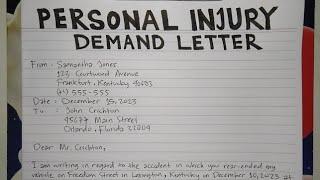 PERSONAL INJURY
DEMAND LETTER
From: Samantha Jones
123 Courtwood Avenue
Frankfurt, Kentucky 40603
(+1) 555-555
Date: December 15, 2023
To: John Crichton
45677 Main Street
Orlando, Florida 22004
Dear Mr. Crichton,
I am writing in regard to the accident in which you rear-ended my
vehicle on Freedom Street in Lexington, Kentucky on December 10, 2023 at